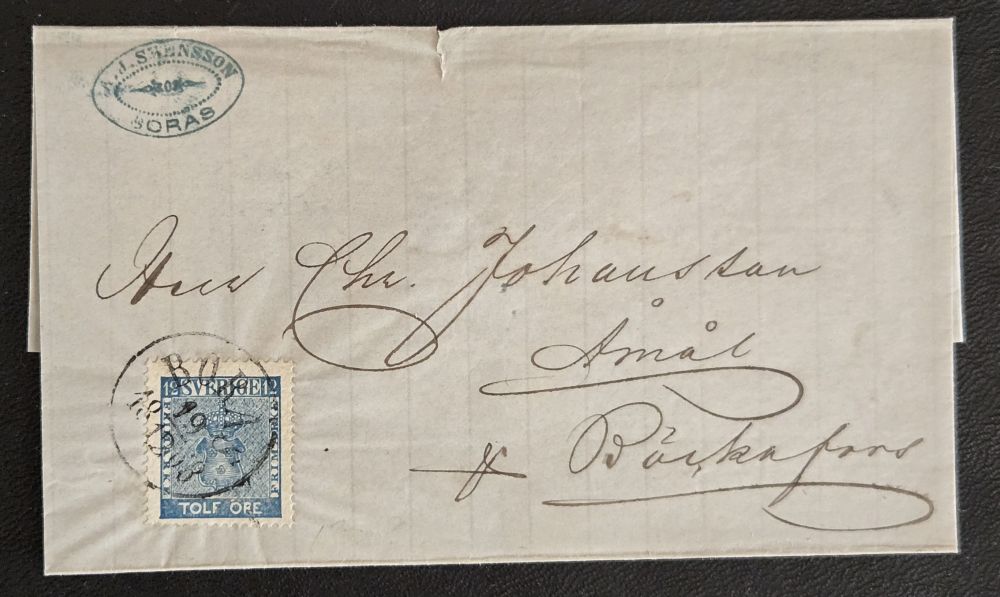 A. J. SVENSSON
BORÅS
Herr Chr. Johansson
Åmål
Bäckefors
BORÅS
19
18 63
12 SVERIGE 12
FRIMÄRKE
TOLF ÖRE